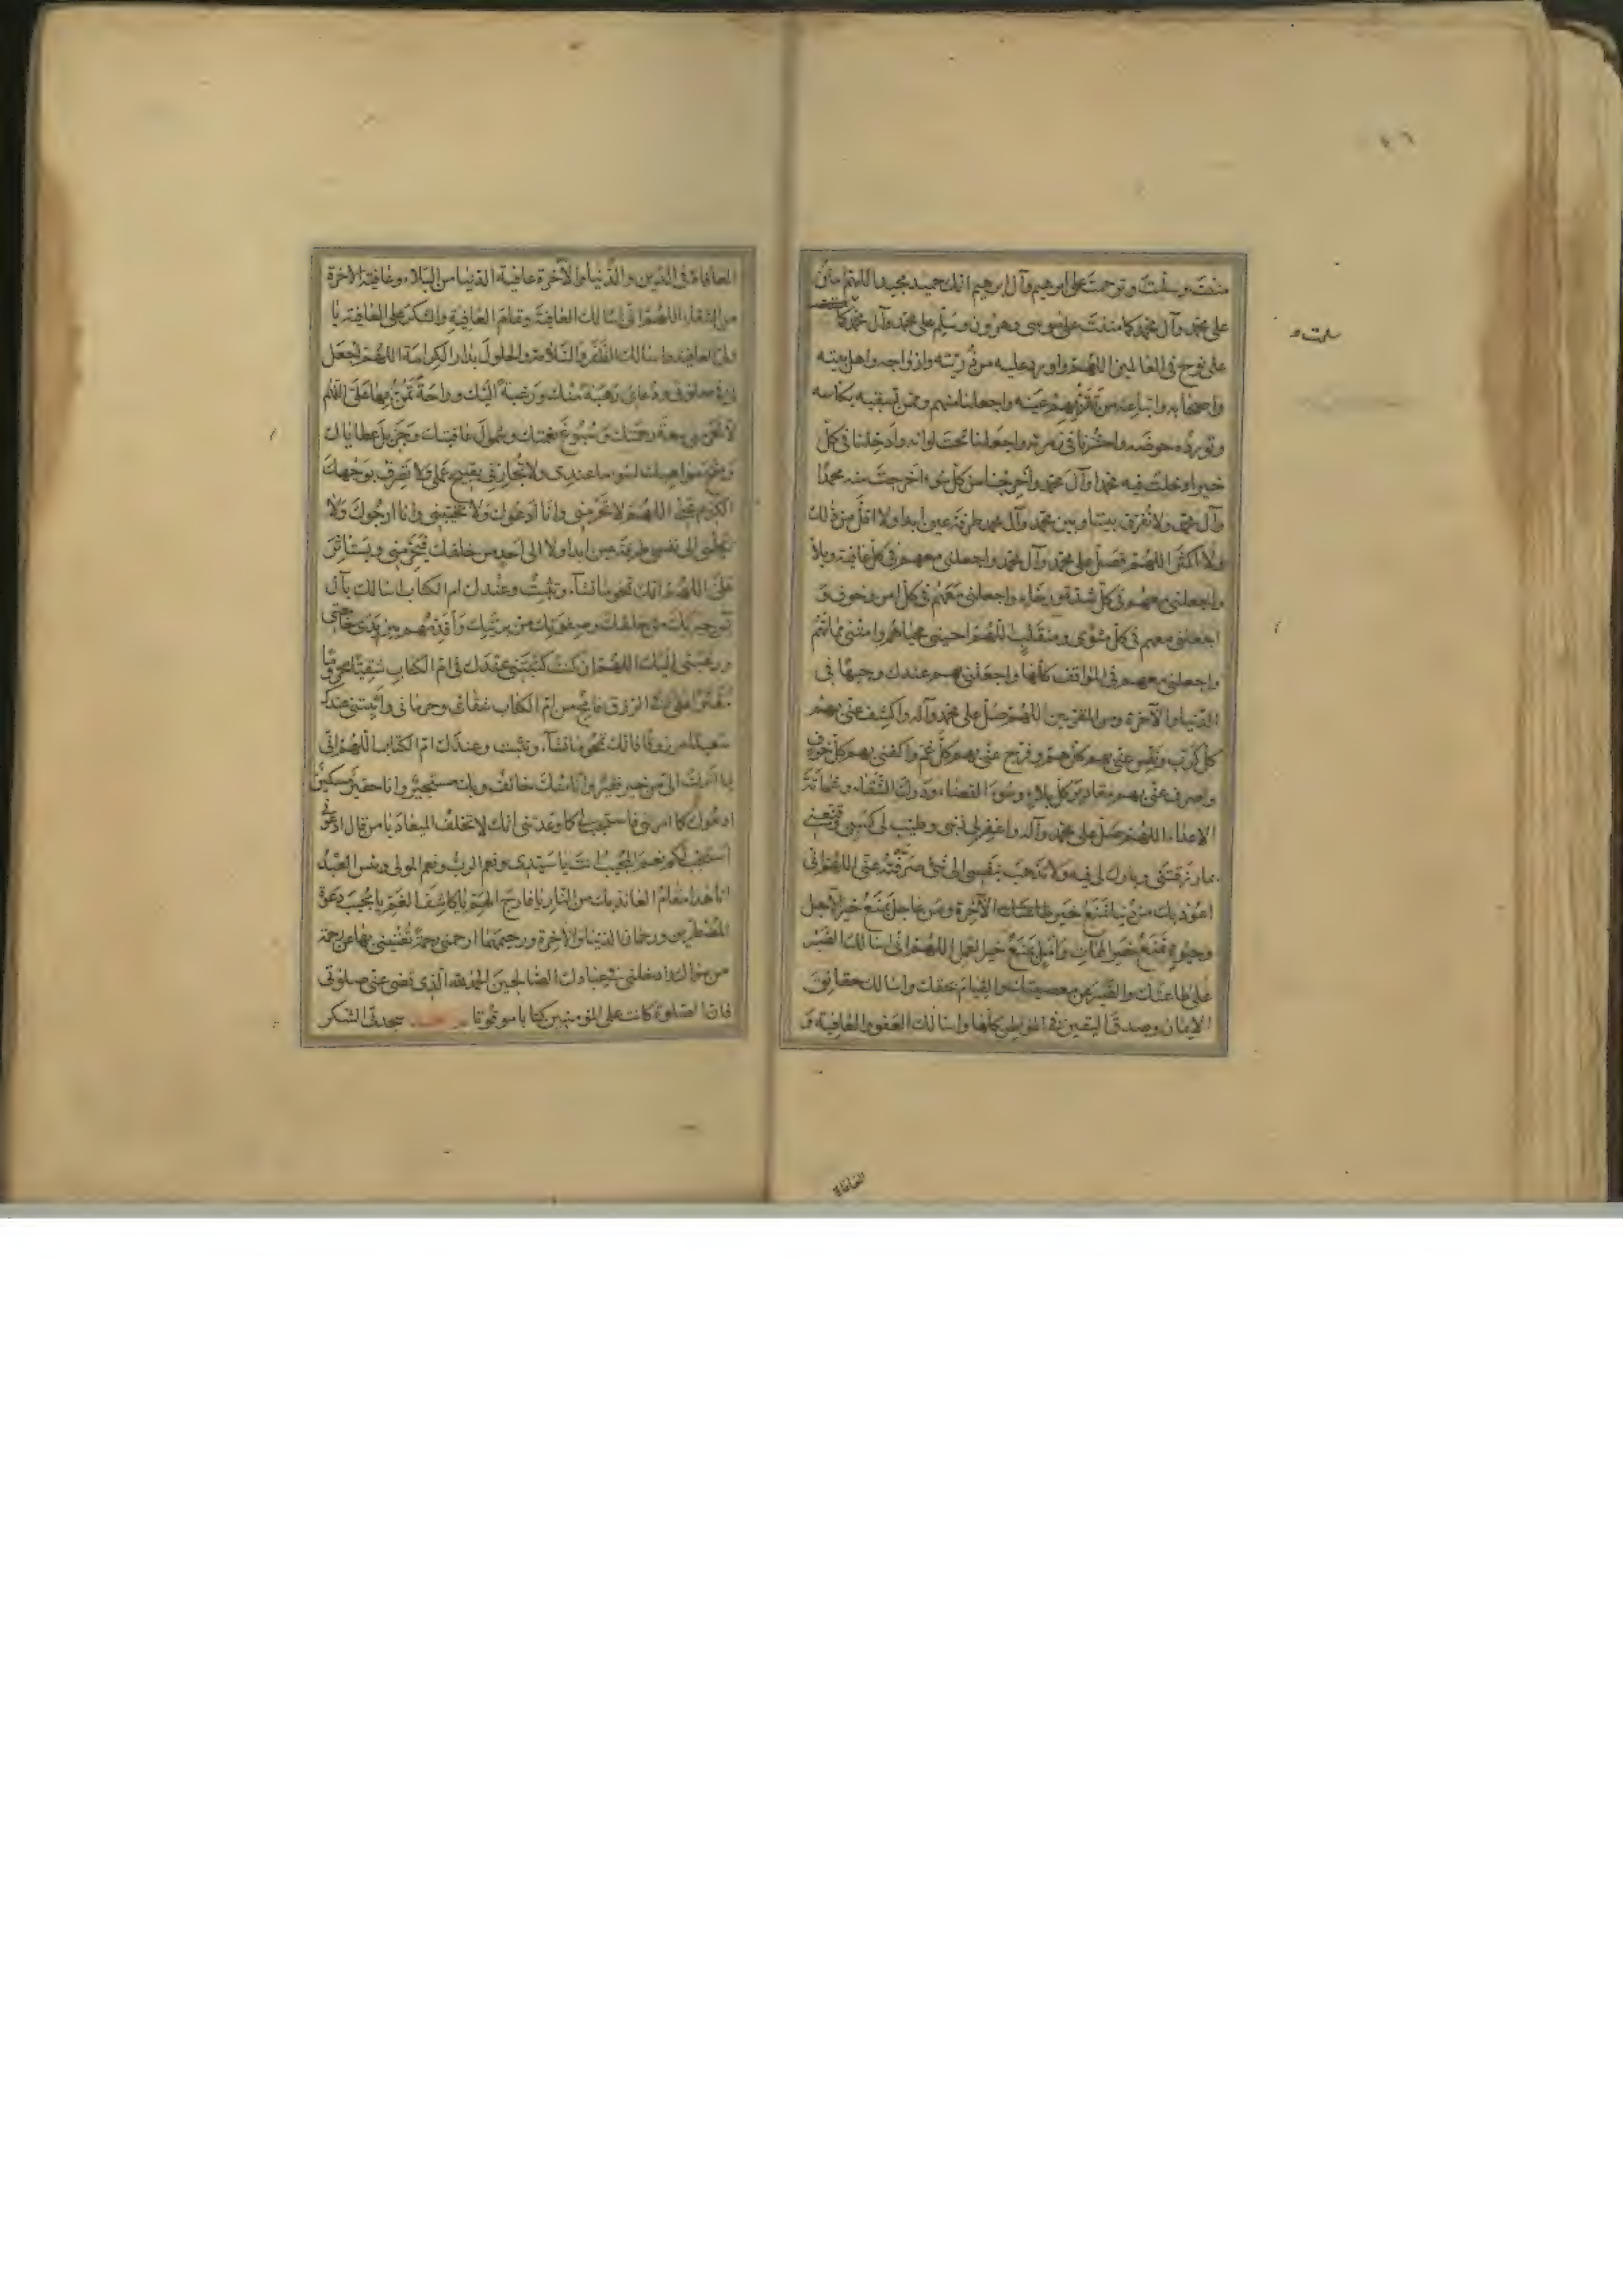 مننت وسلمت وترحمت على ابرهيم وآل ابرهيم انك حميد مجيد اللهم امنن
على محمد وآل محمد كما مننت على موسى وهرون وسلم على محمد وآل محمد كما
سلمت
على نوح فى العالمين اللهم واورد عليه من ذريته وازواجه واهل بيته
واصحابه واتباعه من تقر بهم عينه واجعلنا منهم وممن تسقيه بكاسه
وتورده حوضه واحشرنا فى زمرته واجعلنا تحت لوائه وادخلنا فى كل
خير ادخلت فيه محمدا وآل محمد واخرجنا من كل سوء اخرجت منه محمدا
وآل محمد ولا تفرق بيننا وبين محمد وآل محمد طرفة عين ابدا ولا اقل من ذلك
ولا اكثر اللهم صل على محمد وآل محمد واجعلنى معهم فى كل عافية وبلاء
واجعلنى معهم فى كل شدة ورخاء واجعلنى معهم فى كل امن وخوف و
اجعلنى معهم فى كل مثوى ومنقلب اللهم احينى محياهم وامتنى مماتهم
واجعلنى معهم فى المواقف كلها واجعلنى بهم عندك وجيها فى
الدنيا والآخرة ومن المقربين اللهم صل على محمد وآله واكشف عنى بهم
كل كرب ونفس عنى بهم كل هم وفرج عنى بهم كل غم واكفنى بهم كل خوف
واصرف عنى بهم مقادير كل بلاء وسوء القضاء ودرك الشقاء وشماتة
الاعداء اللهم صل على محمد وآله واغفر لى ذنبى وطيب لى كسبى وقنعنى
بما رزقتنى وبارك لى فيه ولا تذهب بنفسى الى شئ صرفته عنى اللهم انى
اعوذ بك من دنيا تمنع خير الآخرة ومن عاجل يمنع خير الآجل
وحيوة تمنع خير الممات وامل يمنع خير العمل اللهم انى اسالك الصبر
على طاعتك والصبر عن معصيتك والقيام بحقك واسالك حقائق
الايمان وصدق اليقين فى المواطن كلها واسالك العفو والعافية و
المعافاة
المعافاة فى الدين والدنيا والآخرة عافية الدنيا من البلاء وعافية الآخرة
من الشقاء اللهم انى اسالك العافية وتمام العافية والشكر على العافية يا
ولى العافية واسالك الظفر والسلامة والحلول بدار الكرامة اللهم اجعل
لى فى صلوتى ودعائى رهبة منك ورغبة اليك وراحة تمن بها على اللهم
لا تحرمنى سعة رحمتك وسبوغ نعمتك وشمول عافيتك وجزيل عطاياك
ومنح مواهبك لسوء ما عندى ولا تجازنى بقبيح عملى ولا تصرف بوجهك
الكريم عنى اللهم لا تحرمنى وانا ادعوك ولا تخيبنى وانا ارجوك ولا
تكلنى الى نفسى طرفة عين ابدا ولا الى احد من خلقك فيحرمنى ويستاثر
على اللهم انك تمحو ما تشآء وتثبت وعندك ام الكتاب اسالك بآل
يس خيرتك من خلقك وصفوتك من بريتك واقدمهم بين يدى حاجتى
ورغبتى اليك اللهم ان كنت كتبتنى عندك فى ام الكتاب شقيا محروما
مقترا على فى الرزق فامح من ام الكتاب شقائى وحرمانى واثبتنى عندك
سعيدا مرزوقا فانك تمحو ما تشآء وتثبت وعندك ام الكتاب اللهم انى
لما انزلت الى من خير فقير وانا منك خائف وبك مستجير وانا حقير مسكين
ادعوك كما امرتنى فاستجب لى كما وعدتنى انك لا تخلف الميعاد يا من قال ادعونى
استجب لكم نعم المجيب انت يا سيدى ونعم الرب ونعم المولى وبئس العبد
انا هذا مقام العائذ بك من النار يا فارج الهم ويا كاشف الغم يا مجيب دعوة
المضطرين ورحمان الدنيا والآخرة ورحيمهما ارحمنى رحمة تغنينى بها عن رحمة
من سواك وادخلنى فى عبادك الصالحين الحمد لله الذى قضى عنى صلوتى
فان الصلوة كانت على المؤمنين كتابا موقوتا سجدتى الشكر